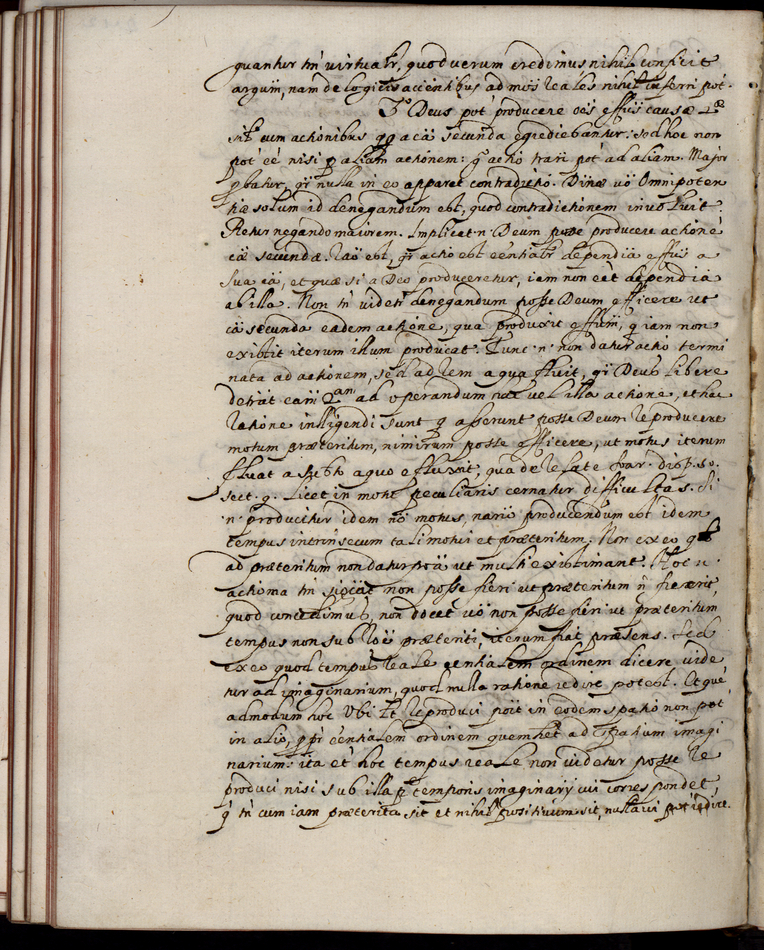 quantur tñ virtualr, quod verum credimus nihil conficit
argum, nam de logicis accientibus ad mōs reales nihil inferri pōt.
3º Deus pōt producere oēs effūs causæ 2æ
sīt cum actionibus qq a cā secunda egrediebantur: sed hoc non
pōt eē nisi p aliam actionem: gº actio trāri pōt ad aliam. Major
pbatur, qr̃ nulla in eo apparet contradictio. Divinæ vō Omnipoten
tiæ solum id denegandum est, quod contradictionem involvit.
Retur negando maiorem. Implicat n. Deum posse producere actionē
cæ secundæ. Raō est, qr̃ actio est eēntialr dependīa effūs a
sua cā, et quæ si a Deo produceretur, iam non eēt dependīa
ab illa. Non tñ videtr denegandum posse Deum efficere ut
cā secunda eadem actione, qua produxit effūm, q iam non
existit iterum illum producat. Tunc n. non datur actio termi
nata ad actionem, sed ad rem a qua fluit, qr̃ Deus libere
detiāt eam 2am ad operandum vel illa actione, et hac
ratione intlligendi sunt q asserunt posse Deum reproducere
motum præteritum, nimirum posse efficere, ut motus iterum
fluat a a quo effluxit, qua de re late Soar. disp. 50.
sect. 9. Licet in motu peculiaris cernatur difficultas. Si
n. producitur idem nō motus, nariō producendum est idem
tempus intrinsecum tali motui et præteritum. Non ex eo qd
ad præteritum non datur poā ut multi existimant. Hoc n.
axioma tñ sigcāt non posse fieri ut præteritum ñ fuerit,
quod concedimus, non docet vō non posse fieri ut præteritum
tempus non sub rōe præteriti, iterum fiat præsens. Sed
ex eo quod tempus reale eēntialem ordinem dicere vide
tur ad imaginarium, quod nulla ratione redire potest. Et quē
admodum hoc Ubi lt reproduci poīt in eodem spatio non pōt
in alio, pp̄r eēntialem ordinem quem het ad spatium imagi
narium: ita et hoc tempus reale non videtur posse re
produci nisi sub illa p temporis imaginarij cui correspondet,
q tñ cum iam præterita sit et nihil positivum sit, nulla vi pōt redire.